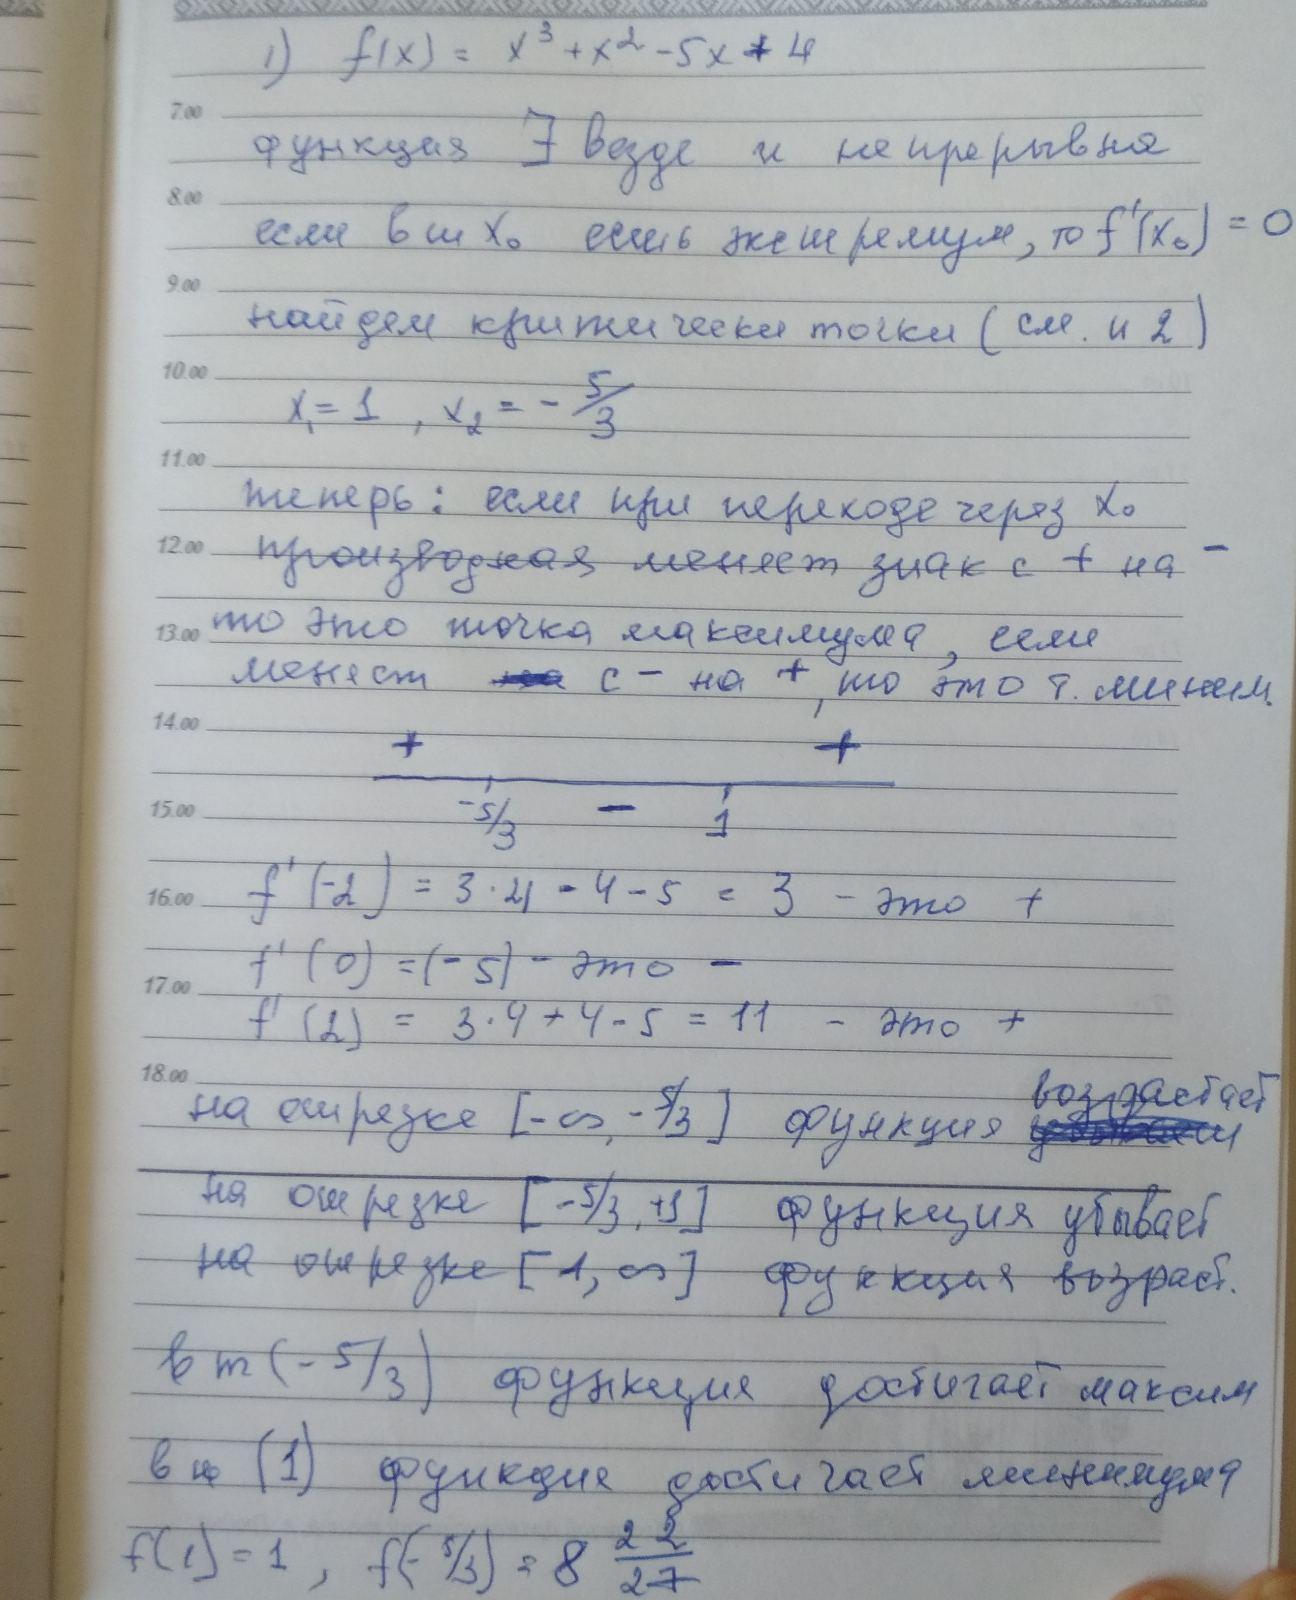 1) f(x) = x³ + x² - 5x + 4
7.00
функция ∃ везде и непрерывна
8.00
если в т x₀ есть экстремум, то f'(x₀) = 0
9.00
найдем критически точки (см. н 2)
10.00
x₁ = 1 , x₂ = - 5/3
11.00
теперь: если при переходе через x₀
12.00
производная меняет знак с + на -
13.00
то это точка максимума, если
меняет с - на +, то это т. миним.
14.00
+ +
-5/3 - 1
15.00
f'(-2) = 3·4 - 4 - 5 = 3 - это +
16.00
f'(0) = (-5) - это -
17.00
f'(2) = 3·4 + 4 - 5 = 11 - это +
18.00
возрастает
на отрезке [-∞, -5/3] функция
на отрезке [-5/3, +1] функция убывает
на отрезке [1, ∞] функция возраст.
в т (-5/3) функция достигает максим
в т (1) функция достигает минимума
f(1) = 1 , f(-5/3) = 8 22/27